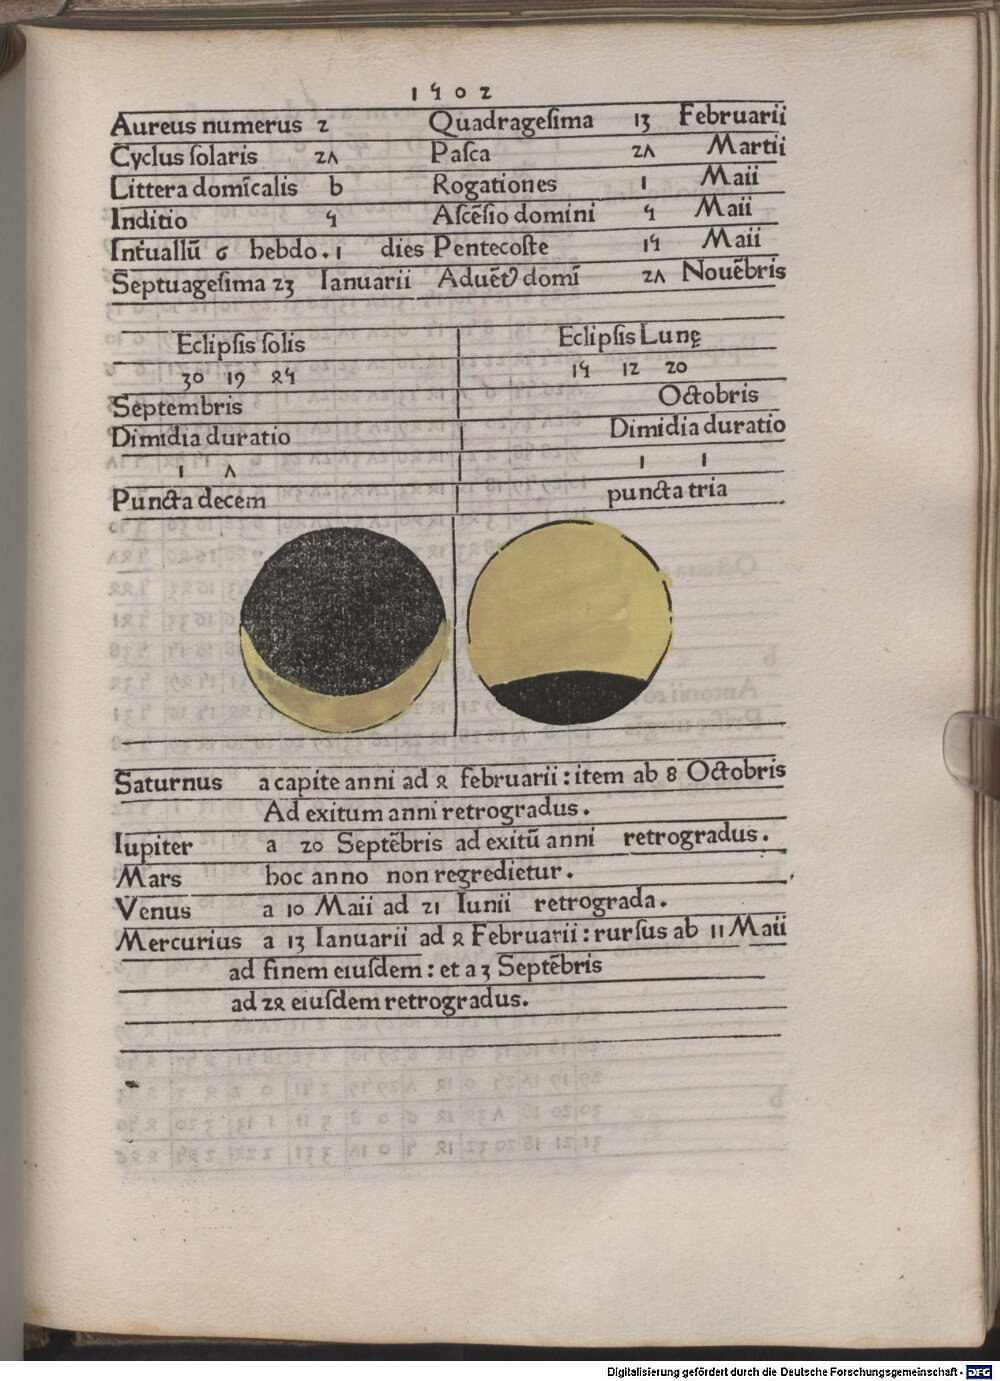 1502
Aureus numerus 2 Quadragesima 13 Februarii
Cyclus solaris 27 Pasca 27 Martii
Littera domīcalis b Rogationes 1 Maii
Inditio 5 Ascēsio domini 5 Maii
Int̄uallū 6 hebdo. 1 dies Pentecoste 15 Maii
Septuagesima 23 Ianuarii Aduētꝰ domī 27 Nouēbris
Eclipsis solis Eclipsis Lunę
30 19 45 15 12 20
Septembris Octobris
Dimidia duratio Dimidia duratio
1 7 1 1
Puncta decem puncta tria
Saturnus a capite anni ad 4 februarii : item ab 8 Octobris
Ad exitum anni retrogradus.
Iupiter a 20 Septēbris ad exitū anni retrogradus.
Mars hoc anno non regredietur.
Venus a 10 Maii ad 21 Iunii retrograda.
Mercurius a 13 Ianuarii ad 4 Februarii : rursus ab 11 Maii
ad finem eiusdem : et a 3 Septēbris
ad 24 eiusdem retrogradus.
Digitalisierung gefördert durch die Deutsche Forschungsgemeinschaft - DFG